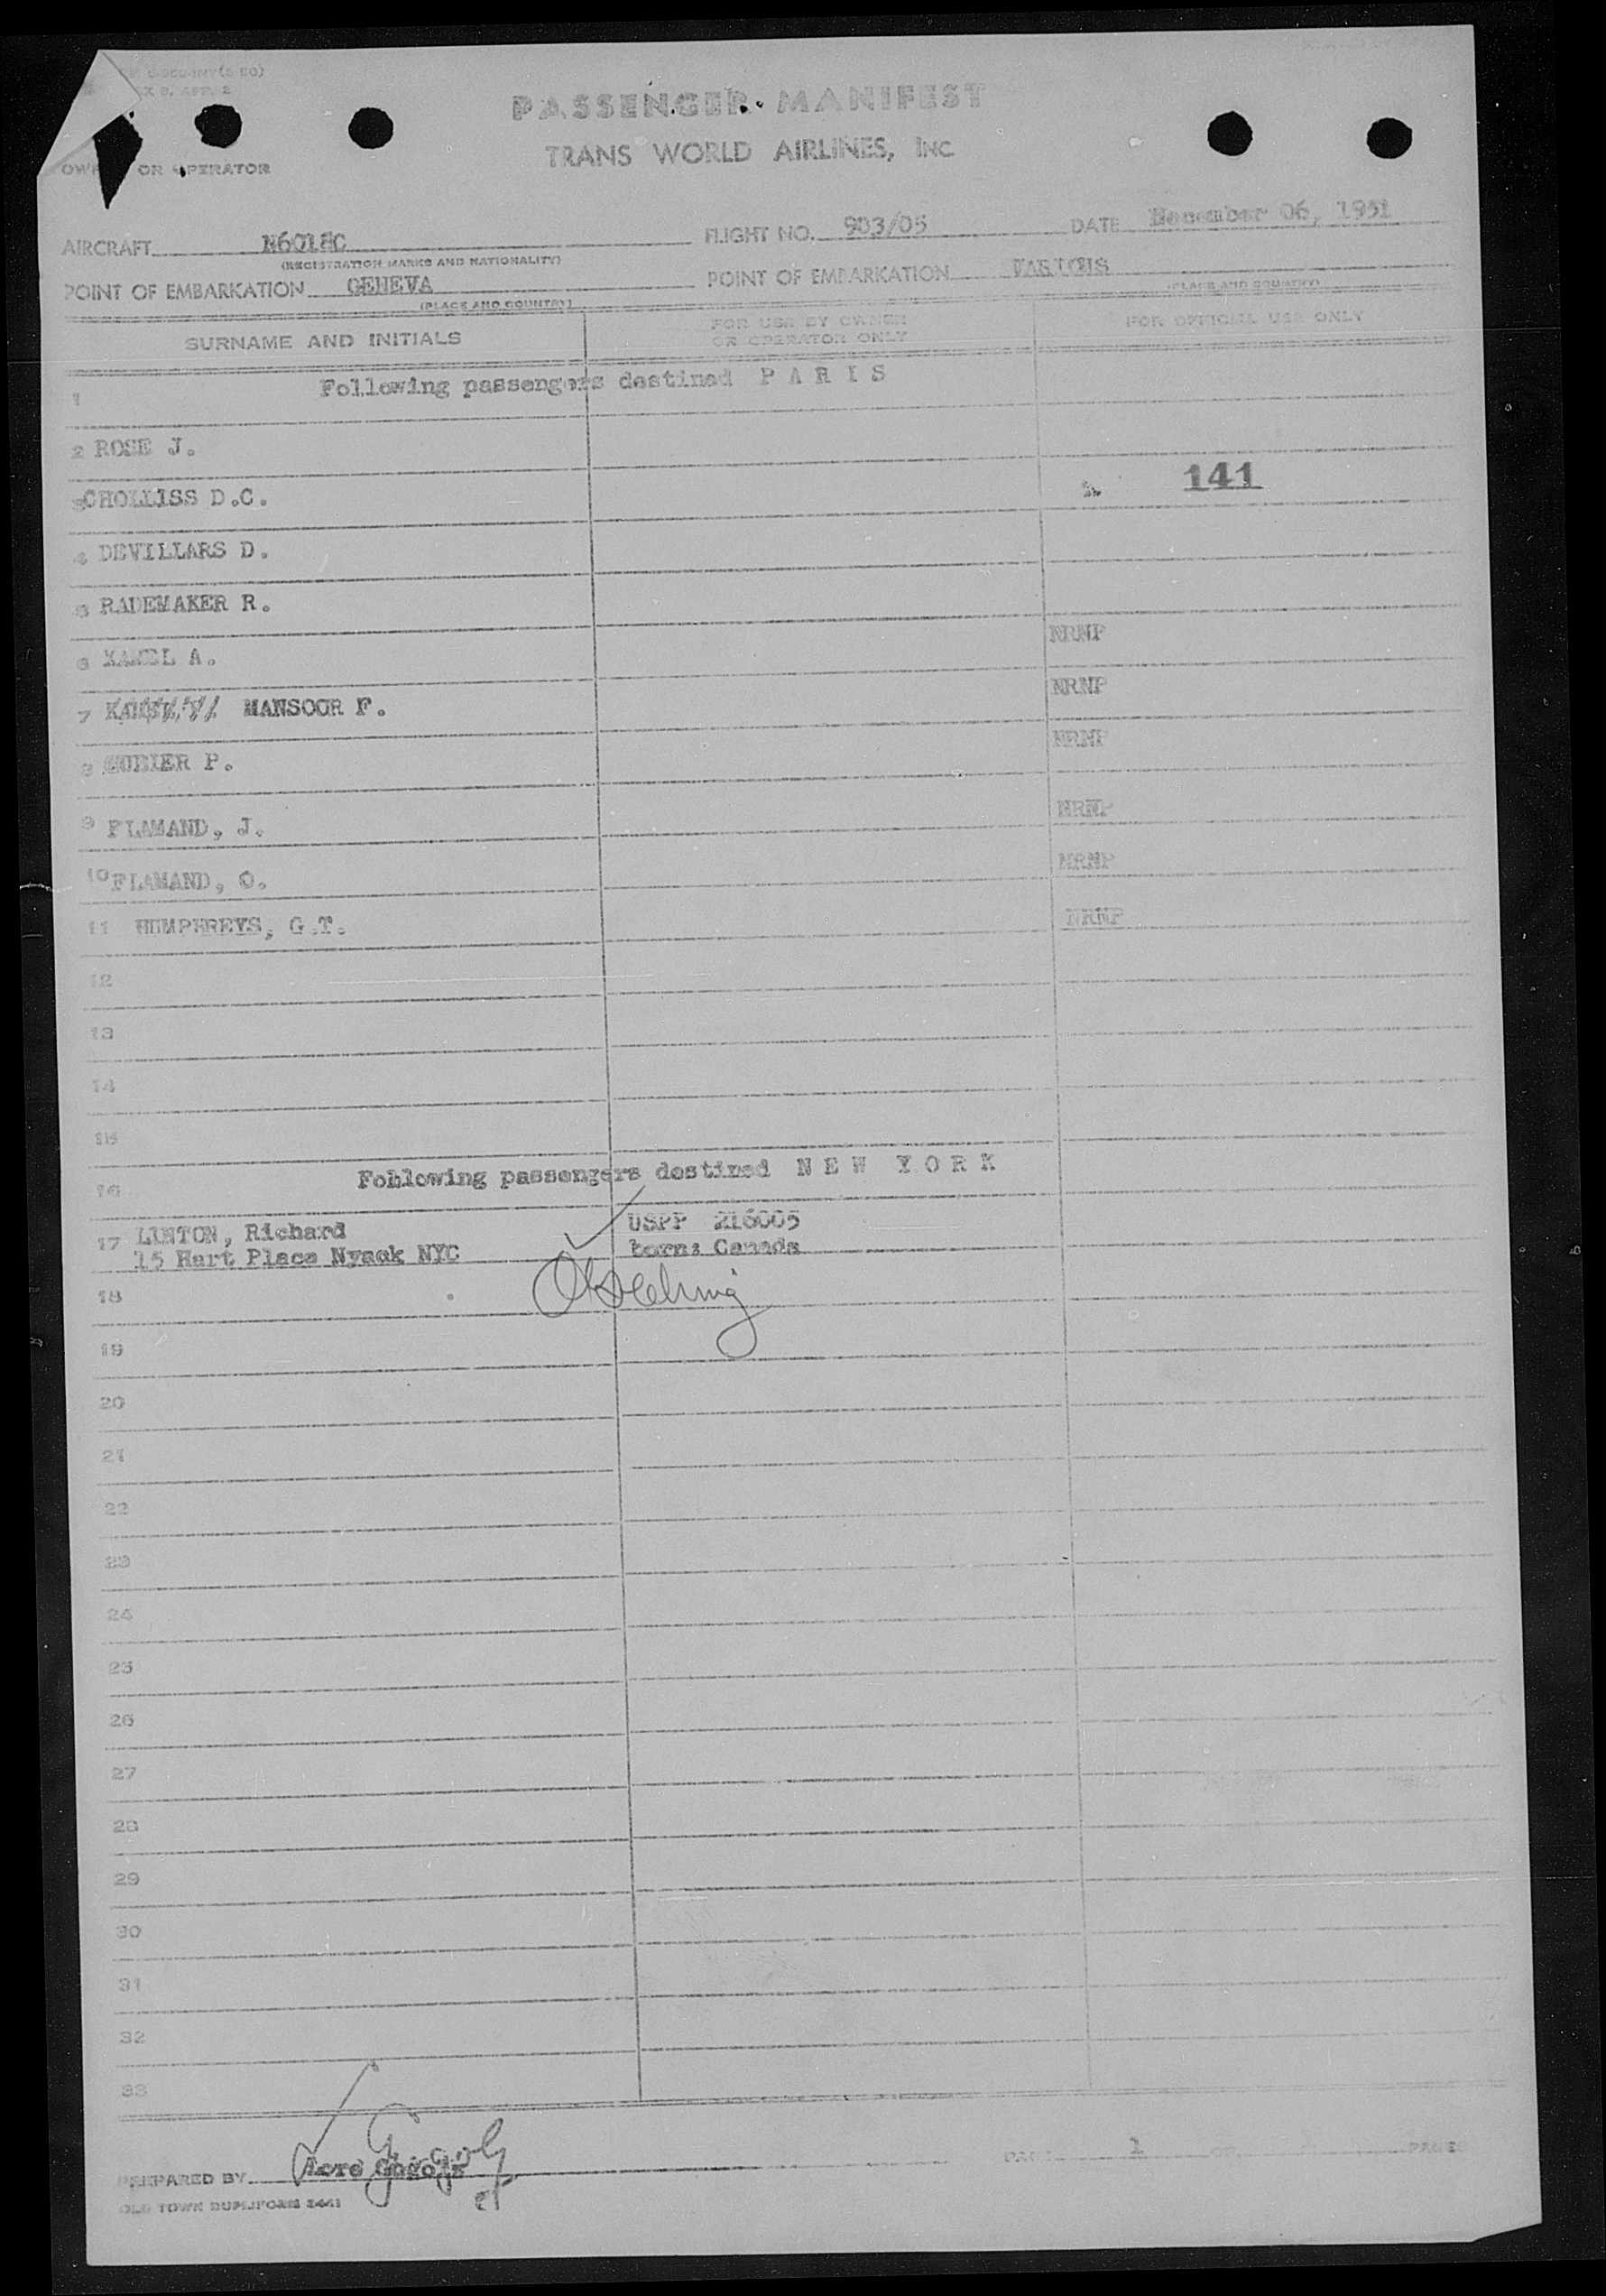 PASSENGER MANIFEST
TRANS WORLD AIRLINES, INC
OR OPERATOR
AIRCRAFT N6018C FLIGHT NO. 903/05 DATE December 06, 1951
(REGISTRATION MARKS AND NATIONALITY)
POINT OF EMBARKATION GENEVA POINT OF EMBARKATION VARIOUS
(PLACE AND COUNTRY) (PLACE AND COUNTRY)
SURNAME AND INITIALS FOR USE BY OWNER OR OPERATOR ONLY FOR OFFICIAL USE ONLY
1 Following passengers destined P A R I S
2 ROSE J.
3 CHOLLISS D.C. 141
4 DEVILLARS D.
5 RADEMAKER R.
6 KAMEL A. NRNP
7 MANSOOR F. NRNP
8 P. NRNP
9 FLAMAND, J. NRNP
10 FLAMAND, O. NRNP
11 HUMPHREYS, G.T. NRNP
12
13
14
15
16 Following passengers destined N E W Y O R K
17 LINTON, Richard USPP 216005
15 Hart Place Nyack NYC born: Canada
18
19
20
21
22
23
24
25
26
27
28
29
30
31
32
33
PREPARED BY PAGE 1 OF PAGES
OLD TOWN